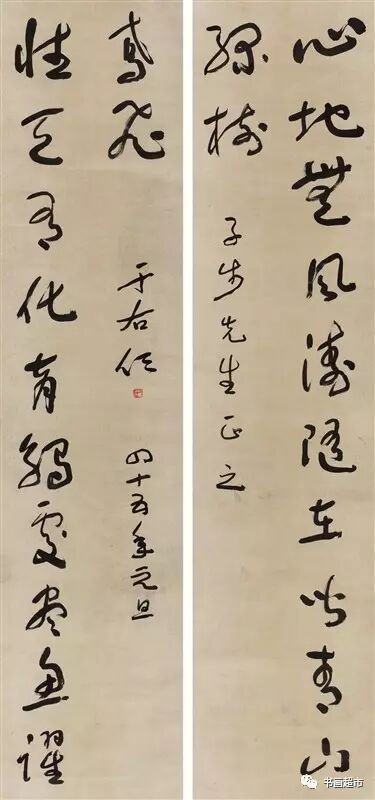 心地無風濤隨在皆青山
綠樹
子步先生正之
性天有化育觸處盡魚躍
鳶飛
于右任 四十五年元旦
书画超市